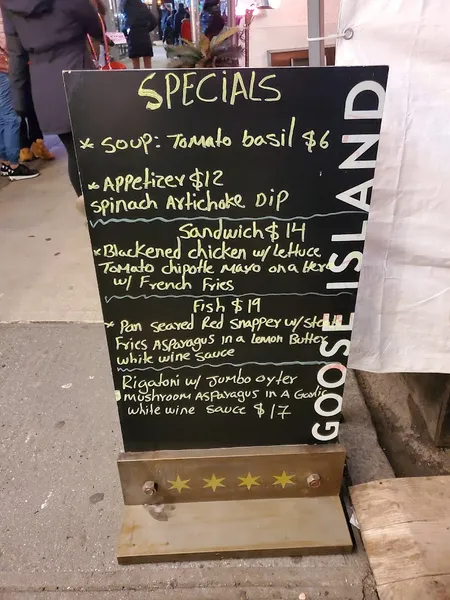 SPECIALS
* Soup: Tomato basil $6
* Appetizer $12
Spinach Artichoke Dip
Sandwich $14
* Blackened chicken w/ lettuce
Tomato chipotle Mayo on a
w/ French Fries
Fish $19
* Pan seared Red Snapper w/
Fries Asparagus in a Lemon Butter
white wine Sauce
Rigatoni w/ Jumbo oyter
Mushroom Asparagus in A
white wine Sauce $17
GOOSE ISLAND